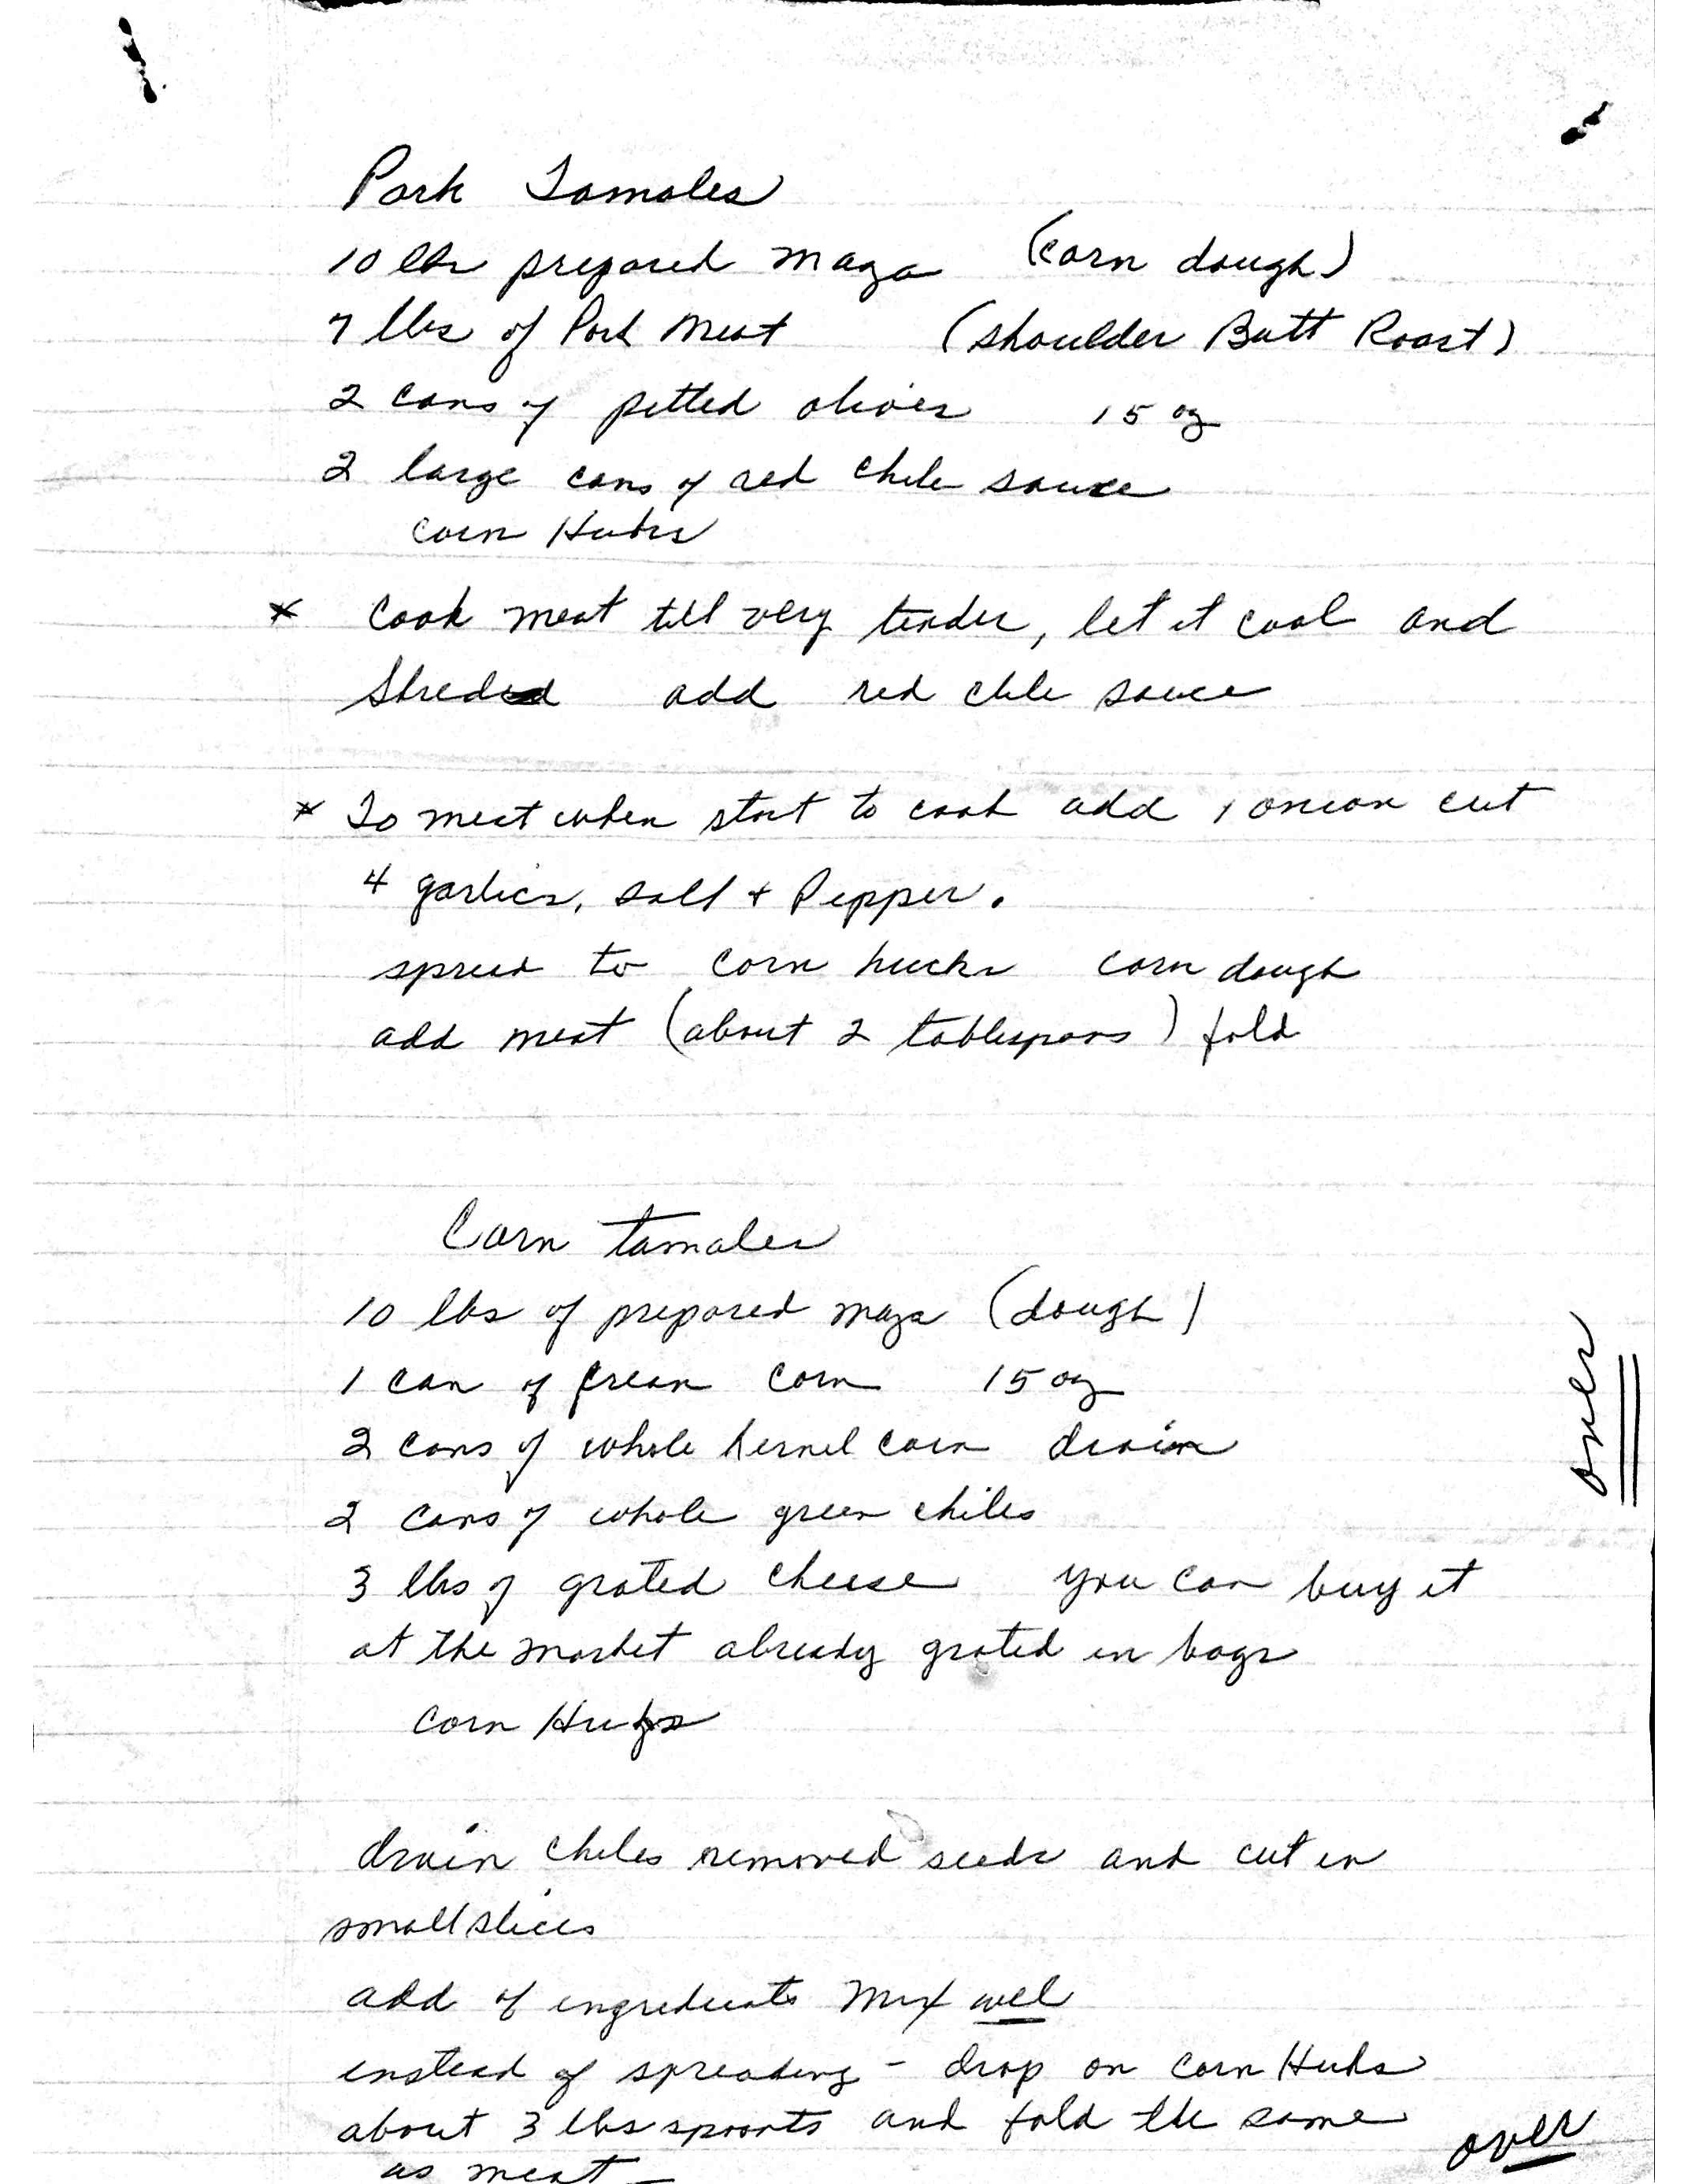 Pork Tamales
10 lbs prepared maza (corn dough)
7 lbs of Pork Meat (shoulder Butt Roast)
2 cans of pitted olives 15 oz
2 large cans of red chile sauce
corn Huks
* Cook meat till very tender, let it cool and
Shreded add red chile sauce
* To meat when start to cook add 1 onion cut
4 garlics, salt + Pepper.
spread to corn hucks corn dough
add meat (about 2 tablespoons) fold
Corn tamales
10 lbs of prepared maza (dough)
1 can of cream corn 15 oz
2 cans of whole kernel corn drain
2 cans of whole green chiles
3 lbs of grated cheese you can buy it
at the market already grated in bags
corn Huks
over
drain chiles removed seeds and cut in
small slices
add of ingredients Mix wel
instead of spreading - drop on corn Huks
about 3 lbs spoonts and fold the same
as meat -
over